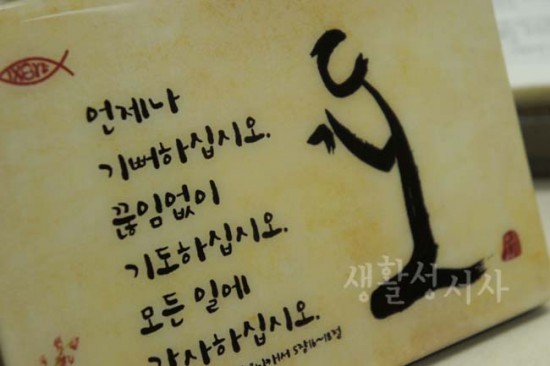 언제나
기뻐하십시오.
끊임없이
기도하십시오.
모든 일에
감사하십시오.
5장16~18절
생활성시사